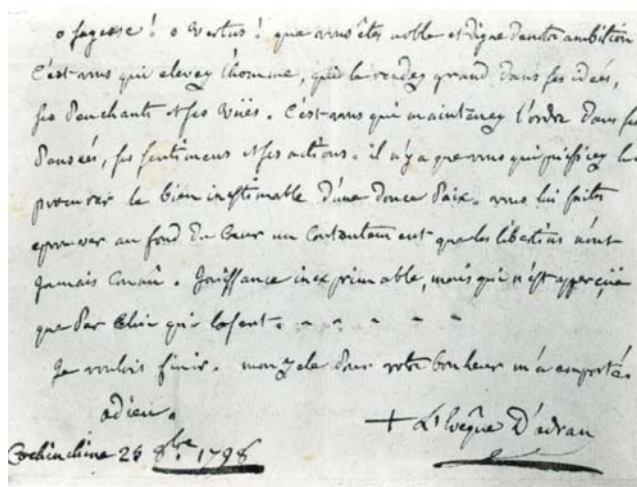 o sagesse ! o vertus ! que vous êtes noble et digne d'enter ambition
C'est vous qui elevez l'homme, qui le rendez grand dans ses ideés,
ses Penchants et ses vües. C'est vous qui maintenez l'ordre Dans ses
Pensées, ses sentimens et ses actions. il n'y a que vous qui puissiez lui
procurer le bien inestimable D'une Douce Paix. vous lui faites
eprouver au fond du Cœur un Contentement que les libertins n'ont
Jamais Connû. Jouissance inexprimable, mais qui n'est apperçüe
que Par Celui qui la sent.
Je voulois finir. mon zele Pour votre bonheur m'a emportés
adieu.
+ L'Evêque D'adran
Cochinchine 25 8bre 1798